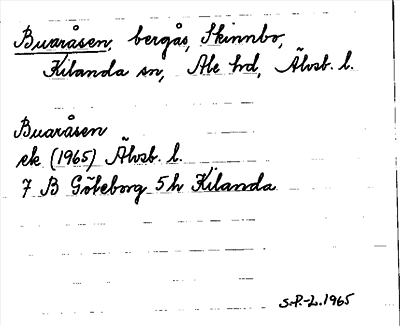 Buaråsen, bergås, Skinnbo,
Kilanda sn, Ale hd, Älvsb. l.
Buaråsen
ek (1965) Älvsb. l.
7 B Göteborg 5h Kilanda
S.P.-L. 1965